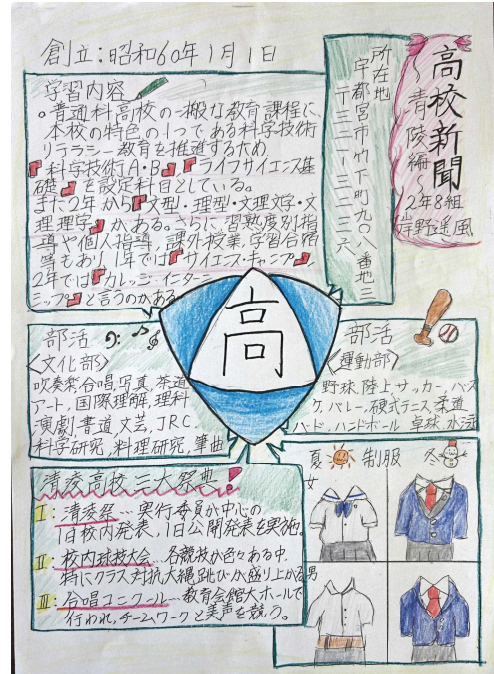 高校新聞
〜青陵編〜
2年8組
創立:昭和60年1月1日
所在地
宇都宮市竹下町九〇八番地三
〒三二一ー三二三六
学習内容
。普通科高校の一般な教育課程に、
本校の特色の1つである科学技術
リテラシー教育を推進するため
『科学技術A・B』『ライフサイエンス基
礎』を設定科目としている。
また2年から『文型・理型・文理文学・文
理理学』がある。さらに、習熟度別指
導や個人指導、課外授業、学習合宿
等もあり1年では『サイエンス・キャンプ』、
2年では『カレッジ・インターン
シップ』と言うのがある
高
部活
〈文化部〉
吹奏楽,合唱,写真,茶道
アート,国際理解,理科
演劇,書道,文芸,JRC,
科学研究,料理研究,箏曲
部活
〈運動部〉
野球,陸上,サッカー,バス
ケ,バレー,硬式テニス,柔道
ハンドボール 卓球,水泳
清陵高校 三大祭典!
Ⅰ:清陵祭…実行委員が中心の
1日校内発表,1日公開発表を実施。
Ⅱ:校内球技大会…各競技が色々ある中
特にクラス対抗大縄跳びが盛り上がる
Ⅲ:合唱コンクール…教育会館大ホールで
行われ,チームワークと美声を競う。
夏 制服 冬
女
男